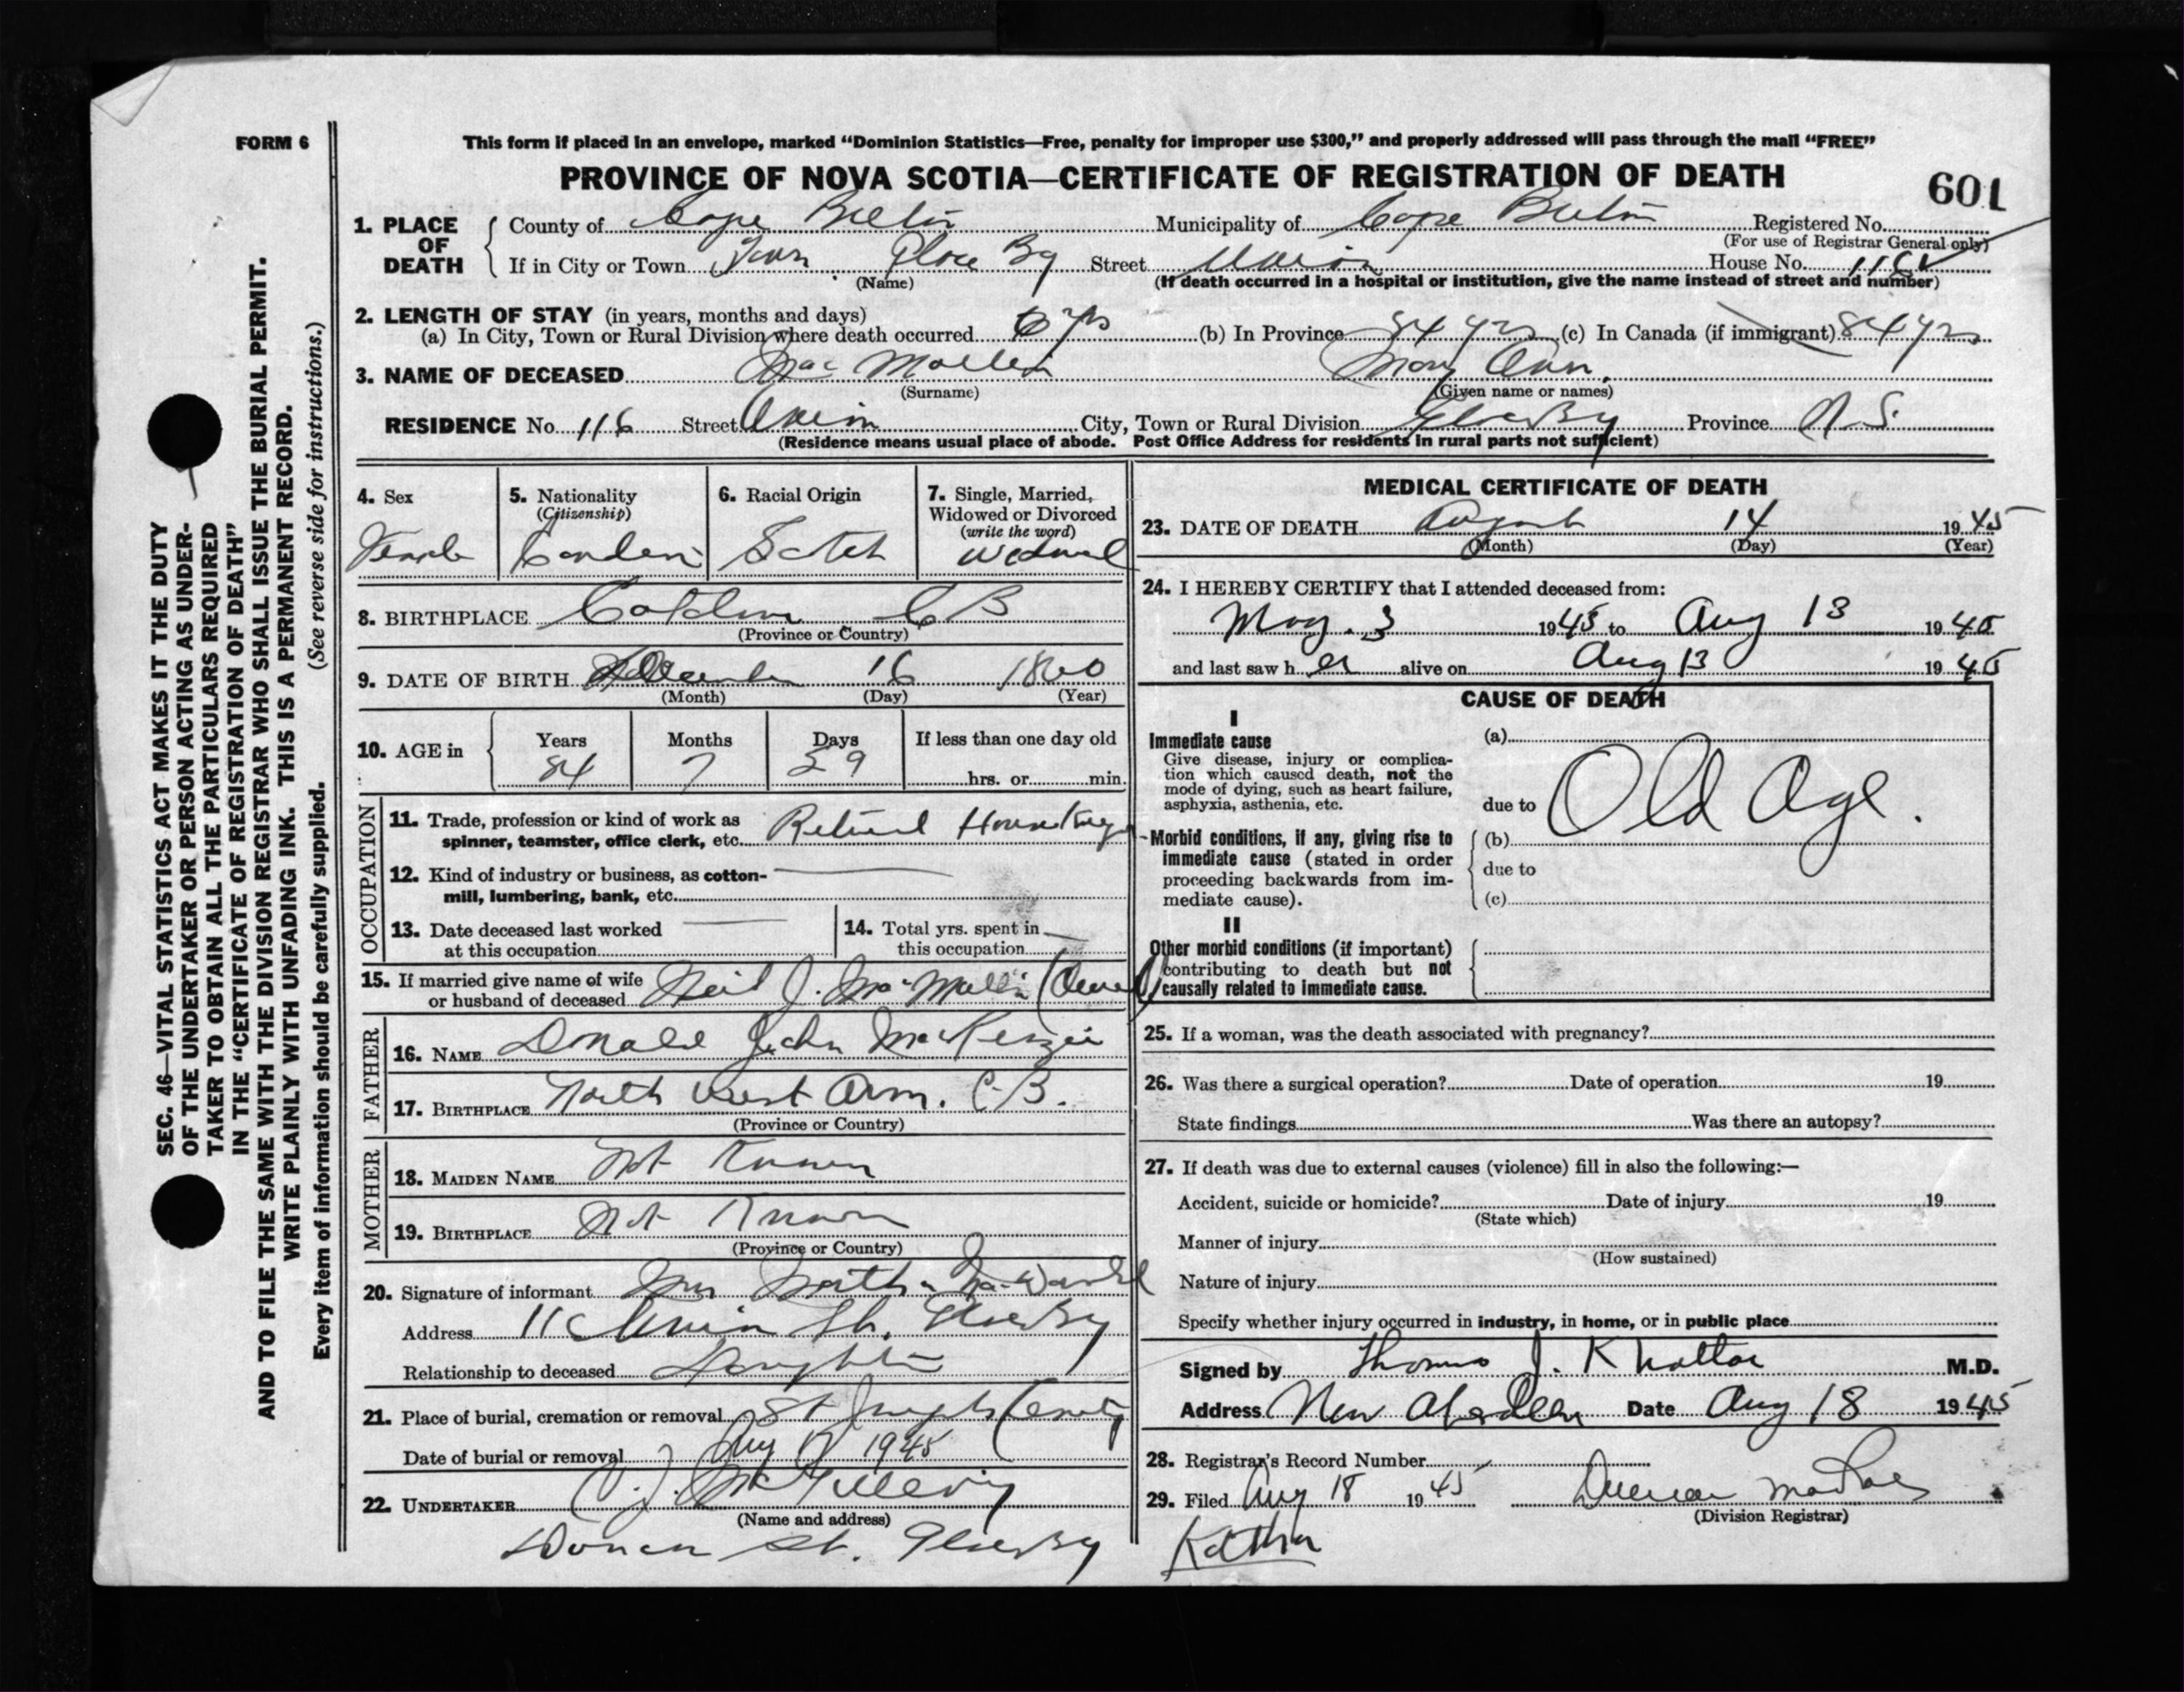 FORM 6
This form if placed in an envelope, marked “Dominion Statistics—Free, penalty for improper use $300,” and properly addressed will pass through the mail “FREE”
PROVINCE OF NOVA SCOTIA—CERTIFICATE OF REGISTRATION OF DEATH
601
1. PLACE OF DEATH
County of Cape Breton Municipality of Cape Breton Registered No.
(For use of Registrar General only)
If in City or Town Town Glace Bay Street Union House No. 116
(Name) (If death occurred in a hospital or institution, give the name instead of street and number)
2. LENGTH OF STAY (in years, months and days)
(a) In City, Town or Rural Division where death occurred 6 yrs (b) In Province 84 yrs (c) In Canada (if immigrant) 84 yrs
3. NAME OF DECEASED Mac Mullin Mary Ann.
(Surname) (Given name or names)
RESIDENCE No. 116 Street Union City, Town or Rural Division Glace Bay Province N.S.
(Residence means usual place of abode. Post Office Address for residents in rural parts not sufficient)
4. Sex
Female
5. Nationality
(Citizenship)
Canadian
6. Racial Origin
Scotch
7. Single, Married,
Widowed or Divorced
(write the word)
Widowed
8. BIRTHPLACE C B
(Province or Country)
9. DATE OF BIRTH December 16 1860
(Month) (Day) (Year)
10. AGE in
Years Months Days If less than one day old
84 7 29 hrs. or min.
OCCUPATION
11. Trade, profession or kind of work as
spinner, teamster, office clerk, etc. Retired Housekeeper
12. Kind of industry or business, as cotton-
mill, lumbering, bank, etc.
13. Date deceased last worked
at this occupation
14. Total yrs. spent in
this occupation
15. If married give name of wife
or husband of deceased Neil J. MacMullin
FATHER
16. NAME Donald John MacKenzie
17. BIRTHPLACE North West Arm. C.B.
(Province or Country)
MOTHER
18. MAIDEN NAME Not Known
19. BIRTHPLACE Not Known
(Province or Country)
20. Signature of informant Mrs
Address 116 Union St. Glace Bay
Relationship to deceased Daughter
21. Place of burial, cremation or removal St Josephs Cemetery
Date of burial or removal Aug 17 1945
22. UNDERTAKER C. J. McGillivray
(Name and address)
St. Glace Bay
MEDICAL CERTIFICATE OF DEATH
23. DATE OF DEATH August 14 1945
(Month) (Day) (Year)
24. I HEREBY CERTIFY that I attended deceased from:
May. 3 1945 to Aug 13 1945
and last saw her alive on Aug 13 1945
CAUSE OF DEATH
I
Immediate cause
Give disease, injury or complica-
tion which caused death, not the
mode of dying, such as heart failure,
asphyxia, asthenia, etc.
Morbid conditions, if any, giving rise to
immediate cause (stated in order
proceeding backwards from im-
mediate cause).
II
Other morbid conditions (if important)
contributing to death but not
causally related to immediate cause.
(a)
due to Old Age.
(b)
due to
(c)
25. If a woman, was the death associated with pregnancy?
26. Was there a surgical operation? Date of operation 19
State findings Was there an autopsy?
27. If death was due to external causes (violence) fill in also the following:—
Accident, suicide or homicide? Date of injury 19
(State which)
Manner of injury
(How sustained)
Nature of injury
Specify whether injury occurred in industry, in home, or in public place
Signed by Thomas J. Khattar M.D.
Address New Aberdeen Date Aug 18 1945
28. Registrar's Record Number
29. Filed Aug 18 1945 Duncan
(Division Registrar)
SEC. 46—VITAL STATISTICS ACT MAKES IT THE DUTY
OF THE UNDERTAKER OR PERSON ACTING AS UNDER-
TAKER TO OBTAIN ALL THE PARTICULARS REQUIRED
IN THE “CERTIFICATE OF REGISTRATION OF DEATH”
AND TO FILE THE SAME WITH THE DIVISION REGISTRAR WHO SHALL ISSUE THE BURIAL PERMIT.
WRITE PLAINLY WITH UNFADING INK. THIS IS A PERMANENT RECORD.
Every item of information should be carefully supplied. (See reverse side for instructions.)